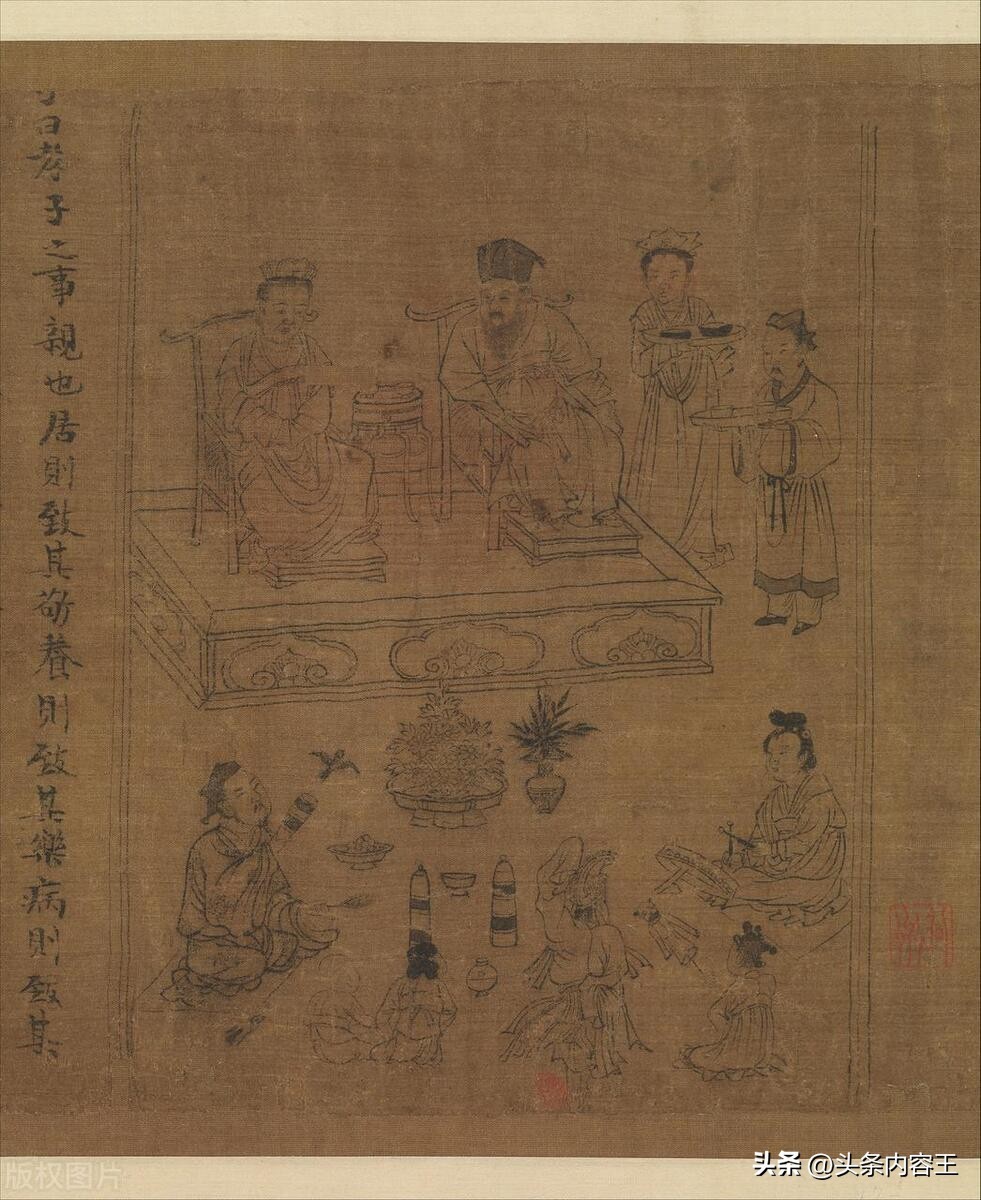 子曰孝子之事親也居則致其敬養則致其樂病則致其
版权图片
头条 @头条内容王